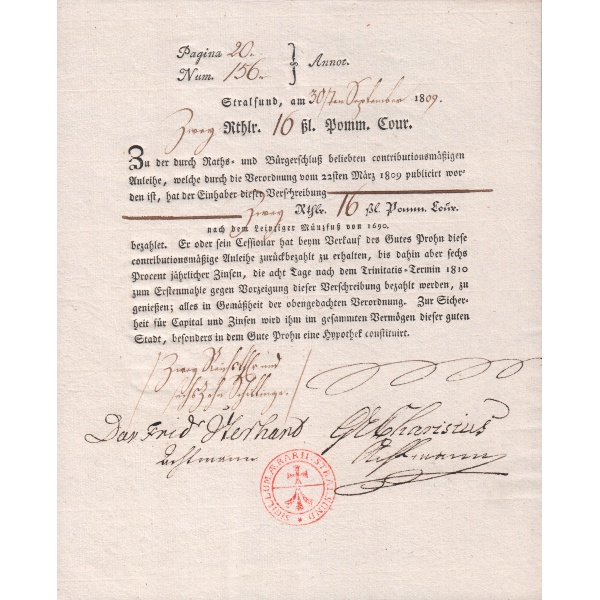 Pagina 20.
Num. 156.
Annot.
Stralsund, am 30sten September 1809.
Zwey Rthlr. 16 ßl. Pomm. Cour.
Zu der durch Raths- und Bürgerschluß beliebten contributionsmäßigen
Anleihe, welche durch die Verordnung vom 22sten März 1809 publicirt wor-
den ist, hat der Einhaber dieser Verschreibung
Zwey Rthlr. 16 ßl. Pomm. Cour.
nach dem Leipziger Münzfuß von 1690.
bezahlet. Er oder sein Cessionar hat beym Verkauf des Gutes Prohn diese
contributionsmäßige Anleihe zurückbezahlt zu erhalten, bis dahin aber sechs
Procent jährlicher Zinsen, die acht Tage nach dem Trinitatis-Termin 1810
zum Erstenmahle gegen Vorzeigung dieser Verschreibung bezahlt werden, zu
genießen; alles in Gemäßheit der obengedachten Verordnung. Zur Sicher-
heit für Capital und Zinsen wird ihm im gesammten Vermögen dieser guten
Stadt, besonders in dem Gute Prohn eine Hypothek constituirt.
Zwey Reichsthlr und
sechszehn Schillinge.
Dav Fried
Charisius
Achtmann
Achtmann
SIGILLUM ÆRARII STRALSUND